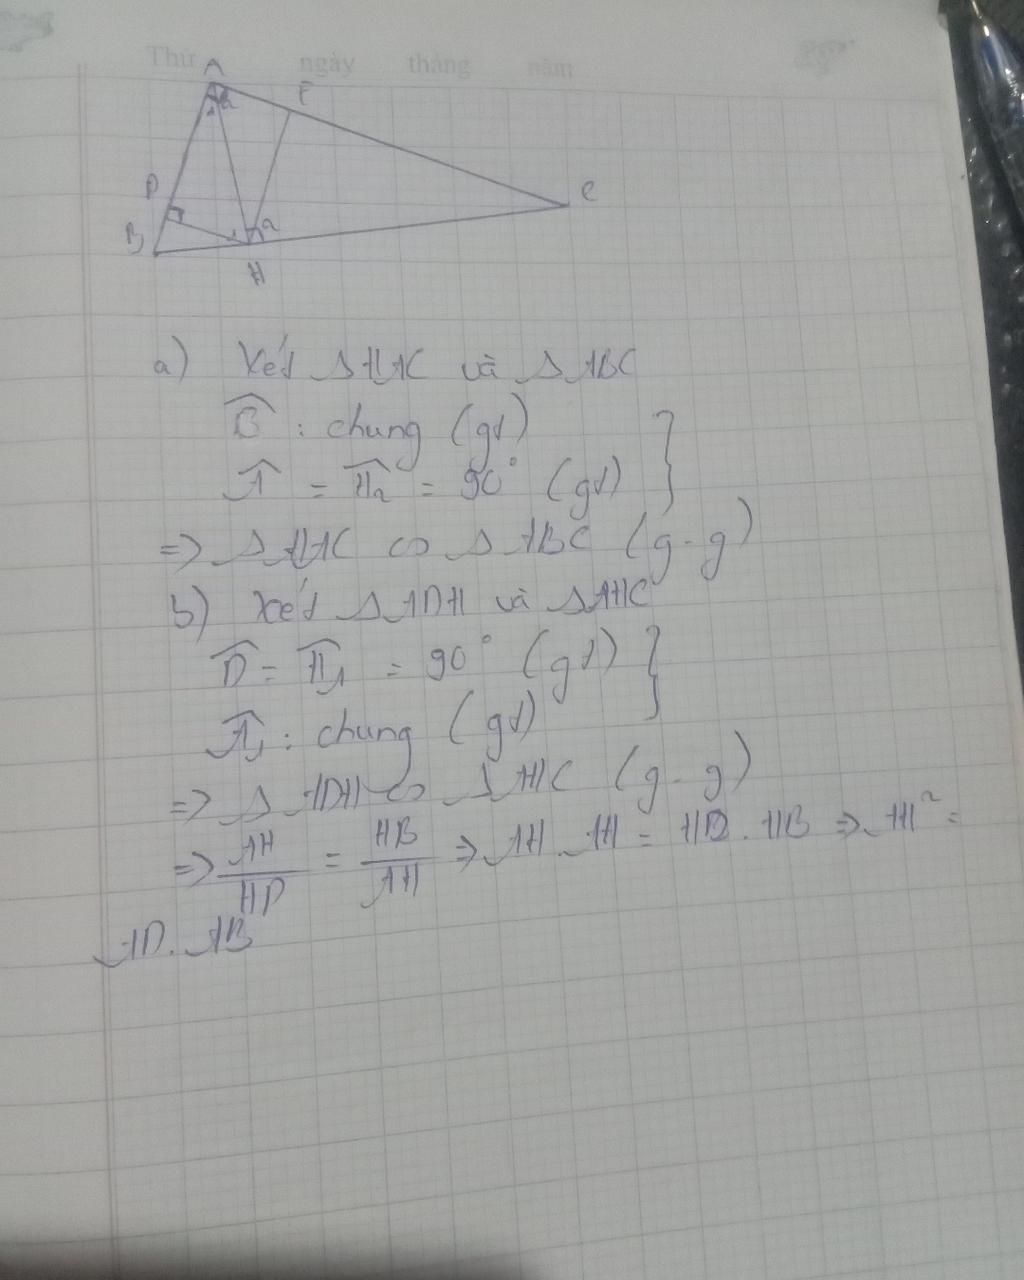 Thứ ngày tháng năm
A
E
D
B
C
H
a) Xét Δ HAC và Δ ABC
Ĉ : chung (gt)
Â = Ĥ₂ = 90° (gt) }
=> Δ HAC ∽ Δ ABC (g-g)
b) Xét Δ ADH và Δ AHC
D̂ = Ĥ₁ = 90° (gt) }
Â₁ : chung (gt)
=> Δ ADH ∽ Δ AHC (g-g)
=> AH/HD = HB/AH => AH . AH = HD . HB => AH² =
AD. AB